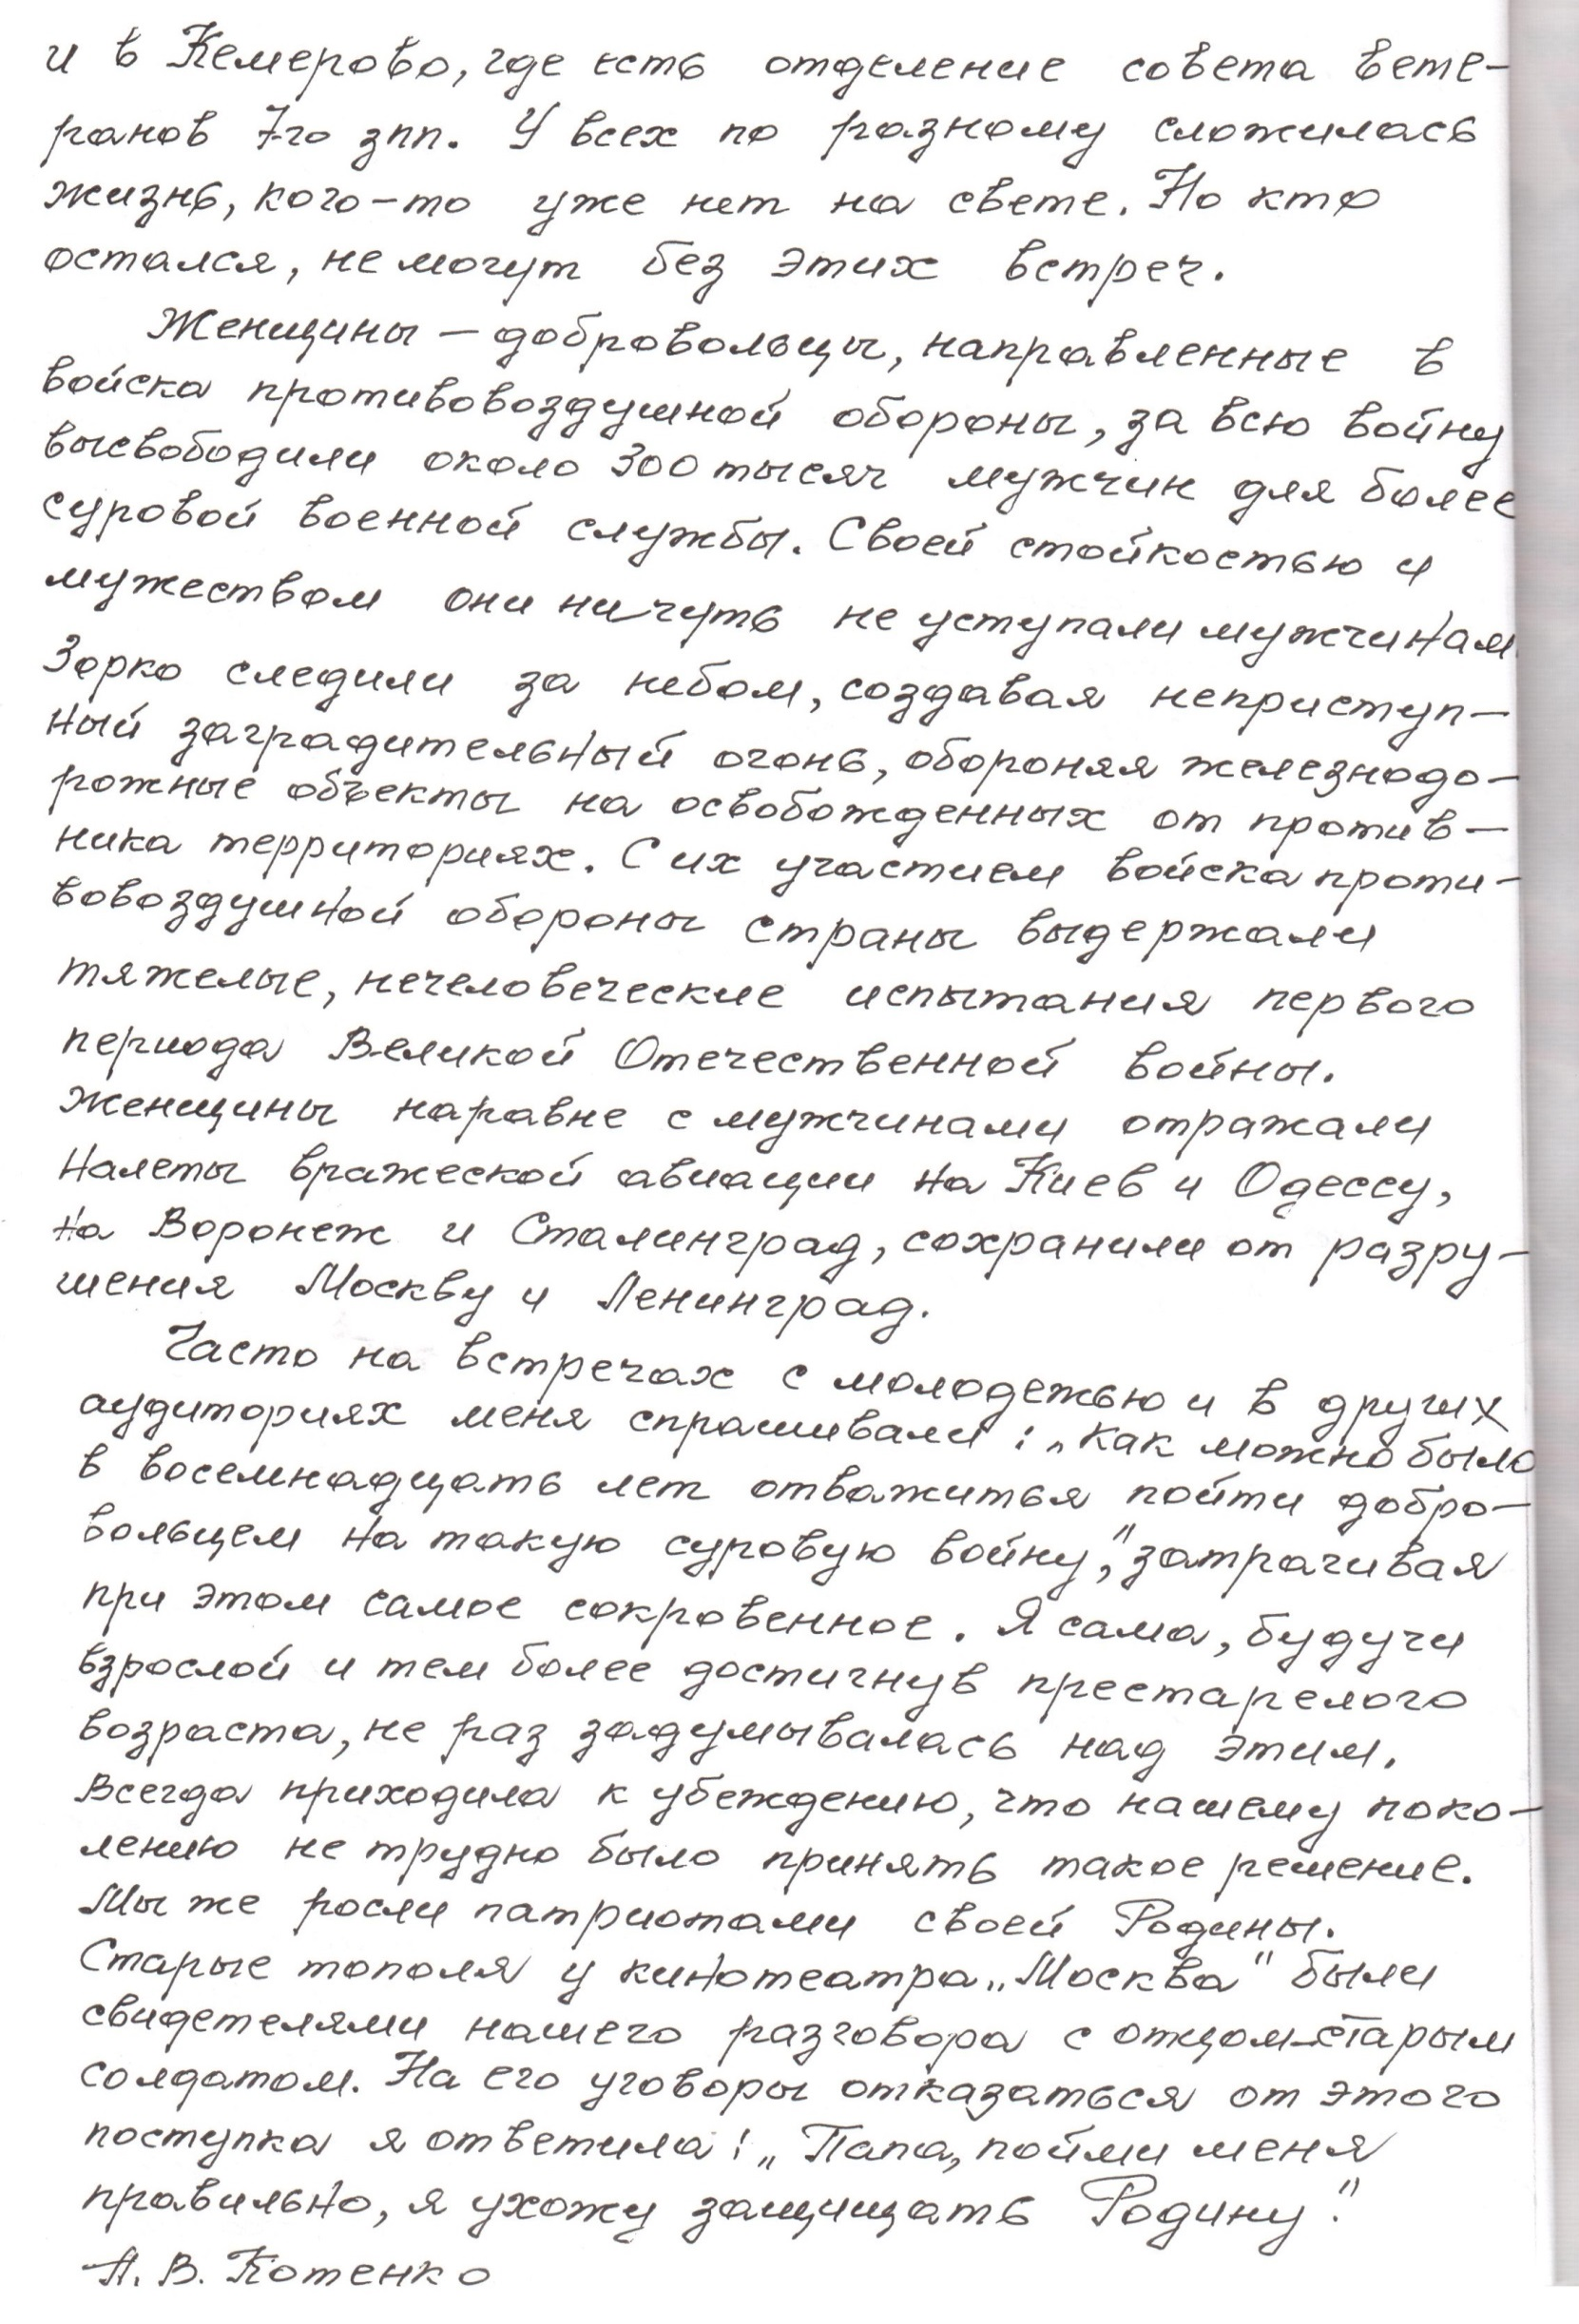 и в Кемерово, где есть отделение совета вете-
ранов 7-го зпп. У всех по разному сложилась
жизнь, кого-то уже нет на свете. Но кто
остался, не могут без этих встреч.
Женщины – добровольцы, направленные в
войска противовоздушной обороны, за всю войну
высвободили около 300 тысяч мужчин для более
суровой военной службы. Своей стойкостью и
мужеством они ничуть не уступали мужчинам.
Зорко следили за небом, создавая неприступ-
ный заградительный огонь, обороняя железнодо-
рожные объекты на освобожденных от против-
ника территориях. С их участием войска проти-
вовоздушной обороны страны выдержали
тяжелые, нечеловеческие испытания первого
периода Великой Отечественной войны.
Женщины наравне с мужчинами отражали
налеты вражеской авиации на Киев и Одессу,
на Воронеж и Сталинград, сохранили от разру-
шения Москву и Ленинград.
Часто на встречах с молодежью и в других
аудиториях меня спрашивали: „Как можно было
в восемнадцать лет отважиться пойти добро-
вольцем на такую суровую войну", затрачивая
при этом самое сокровенное. Я сама, будучи
взрослой и тем более достигнув престарелого
возраста, не раз задумывалась над этим.
Всегда приходила к убеждению, что нашему поко-
лению не трудно было принять такое решение.
Мы же росли патриотами своей Родины.
Старые тополя у кинотеатра „Москва" были
свидетелями нашего разговора с отцом-старым
солдатом. На его уговоры отказаться от этого
поступка я ответила: „Папа, пойми меня
правильно, я ухожу защищать Родину."
А. В. Котенко